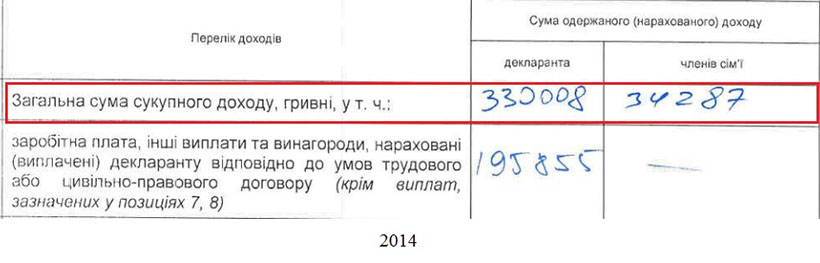 Перелік доходів
Сума одержаного (нарахованого) доходу
декларанта
членів сім'ї
Загальна сума сукупного доходу, гривні, у т. ч.:
330008
34287
заробітна плата, інші виплати та винагороди, нараховані
(виплачені) декларанту відповідно до умов трудового
або цивільно-правового договору (крім виплат,
зазначених у позиціях 7, 8)
195855
—
2014